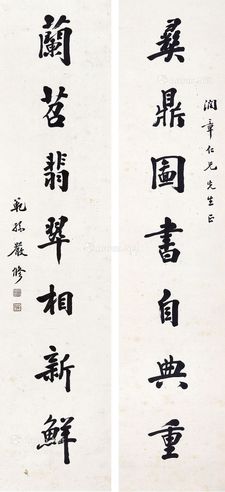 彝鼎圖書自典重
潤章仁兄先生正
蘭苕翡翠相新鮮
範孫嚴修